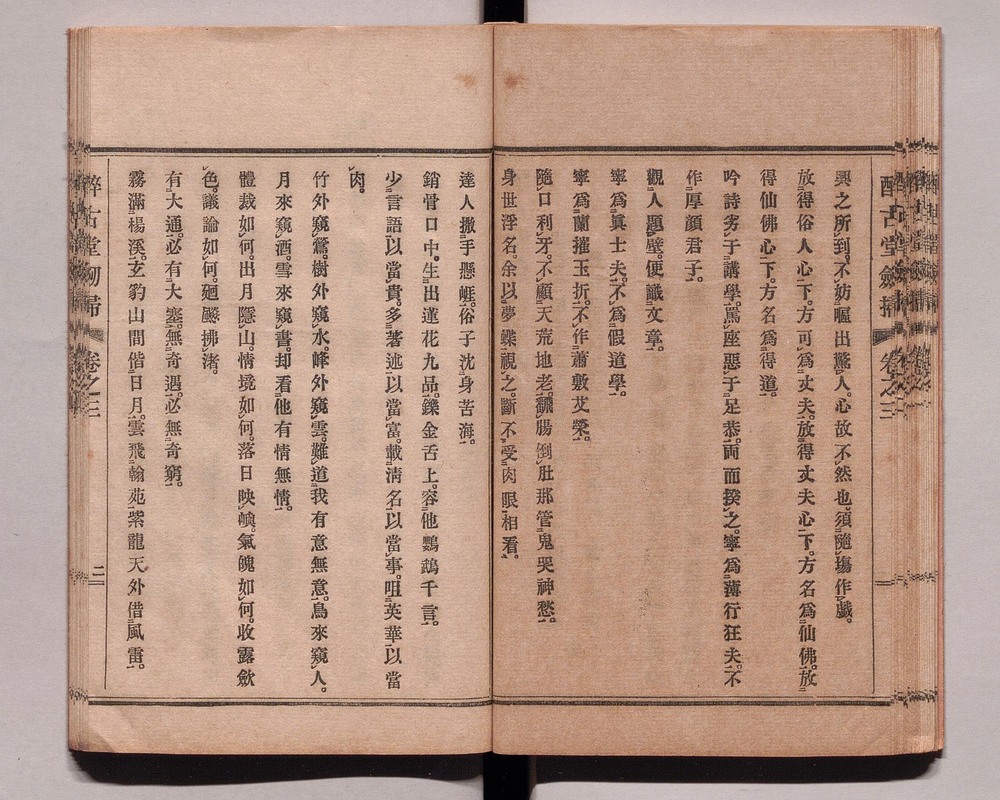 醉古堂劍掃 卷之三
興之所到。不妨嘔出驚人。心故不然也。須隨塲作戲。
放得俗人心下。方可爲丈夫。放得丈夫心下。方名爲仙佛。放
得仙佛心下。方名爲得道。
吟詩劣于講學。罵座惡于足恭。両而揆之。寧爲薄行狂夫。不
作厚顏君子。
觀人題壁。便識文章。
寧爲眞士夫。不爲假道學。
寧爲蘭摧玉折。不作蕭敷艾榮。
隨口利牙。不顧天荒地老。翻腸倒肚那管鬼哭神愁。
身世浮名。余以夢蝶視之。斷不受肉眼相看。
達人撒手懸崕。俗子沈身苦海。
銷骨口中。生出蓮花九品。鑠金舌上。容他鸚鵡千言。
少言語以當貴。多著述以當富。載淸名以當事。咀英華以當
肉。
竹外窺鶯。樹外窺水。峰外窺雲。難道我有意無意。鳥來窺人。
月來窺酒。雪來窺書。却看他有情無情。
體裁如何。出月隱山。情境如何。落日映嶼。氣魄如何。收露歛
色。議論如何。廻飇拂渚。
有大通。必有大塞。無奇遇。必無奇窮。
霧滿楊溪。玄豹山間偕日月。雲飛翰苑。紫龍天外借風雷。
醉古堂劒掃 卷之三 二